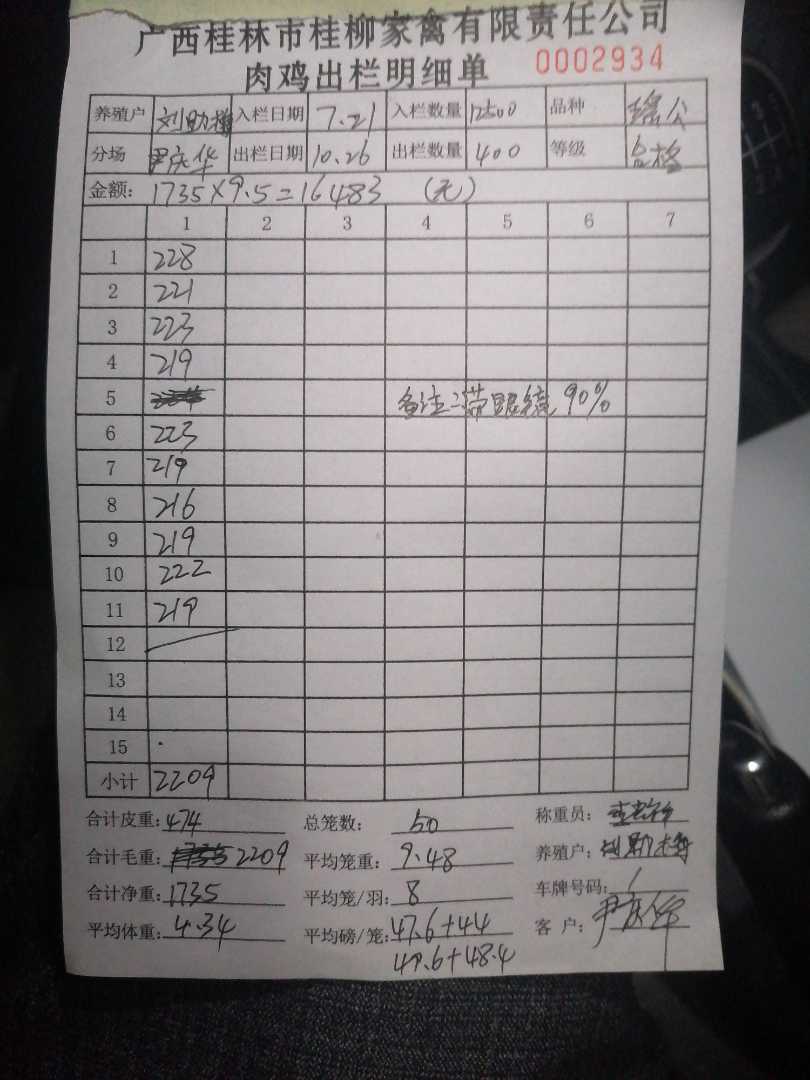 广西桂林市桂柳家禽有限责任公司
肉鸡出栏明细单 0002934
养殖户 入栏日期 7.21 入栏数量 12500 品种 瑶公
分场 尹庆华 出栏日期 10.26 出栏数量 400 等级 合格
金额: 1735×9.5=16483 (元)
1 2 3 4 5 6 7
1 228
2 221
3 223
4 219
5 备注:带眼镜 90%
6 223
7 219
8 216
9 219
10 222
11 219
12
13
14
15
小计 2209
合计皮重: 474 总笼数: 50 称重员:
合计毛重: 2209 平均笼重: 9.48 养殖户:
合计净重: 1735 平均笼/羽: 8 车牌号码: /
平均体重: 4.34 平均磅/笼: 47.6+44 客户: 尹庆华
49.6+48.4